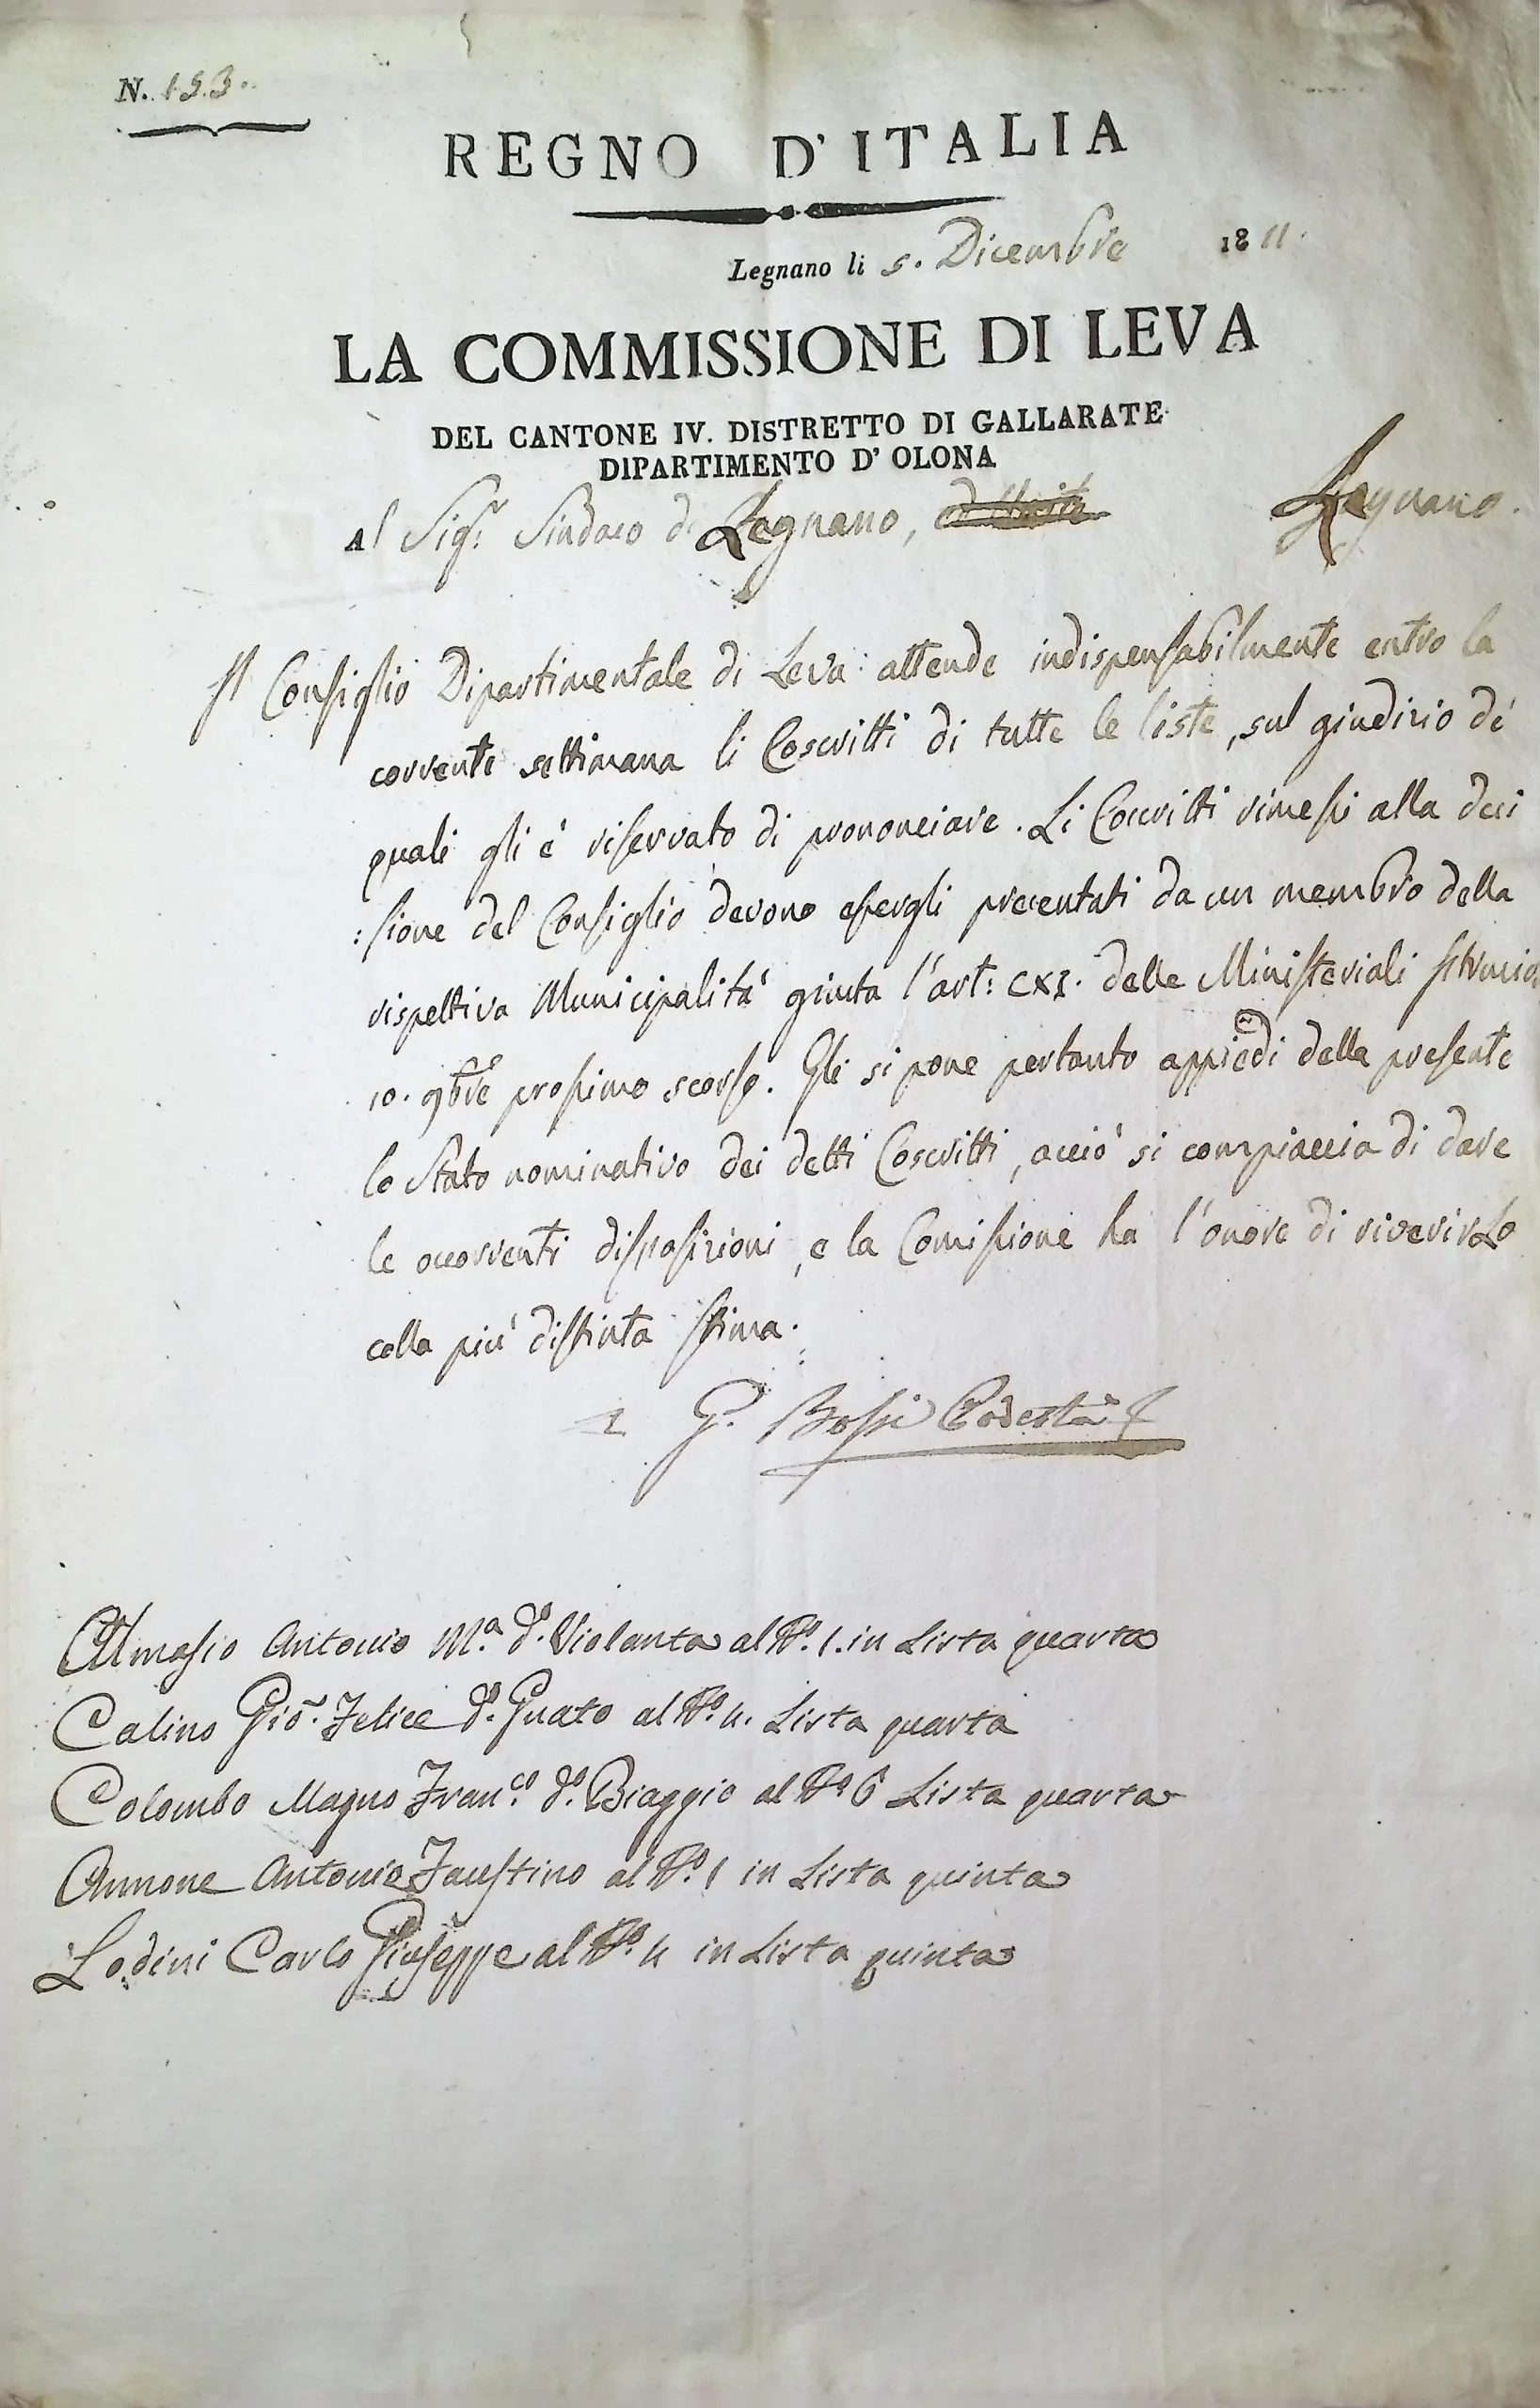 N. 153.
REGNO D'ITALIA
Legnano li 5. Dicembre 1811.
LA COMMISSIONE DI LEVA
DEL CANTONE IV. DISTRETTO DI GALLARATE
DIPARTIMENTO D' OLONA
Al Sigr. Sindaco di Legnano, Legnano.
Il Consiglio Dipartimentale di Leva attende indispensabilmente entro la
corrente settimana li Coscritti di tutte le liste, sul giudizio de'
quali gli è riservato di prononciare. Li Coscritti rimessi alla deci
:sione del Consiglio devono essergli presentati da un membro della
rispettiva Municipalità giusta l'art: CXI. delle Ministeriali Istruzio
10. 9bre prossimo scorso. Gli si pone pertanto appiedi della presente
lo Stato nominativo dei detti Coscritti, acciò si compiaccia di dare
le occorrenti disposizioni, e la Comissione ha l'onore di riverirlo
colla più distinta stima.
G. Bossi Podestà
Almasio Antonio Ma. do. Violanta al No. 1. in Lista quarta
Calino Gio. Felice do. al No. 4. Lista quarta
Colombo Magno Franco. do. Biaggio al No 6 Lista quarta
Annone Antonio Faustino al No. 1 in Lista quinta
Lodini Carlo Giuseppe al No. 4 in Lista quinta